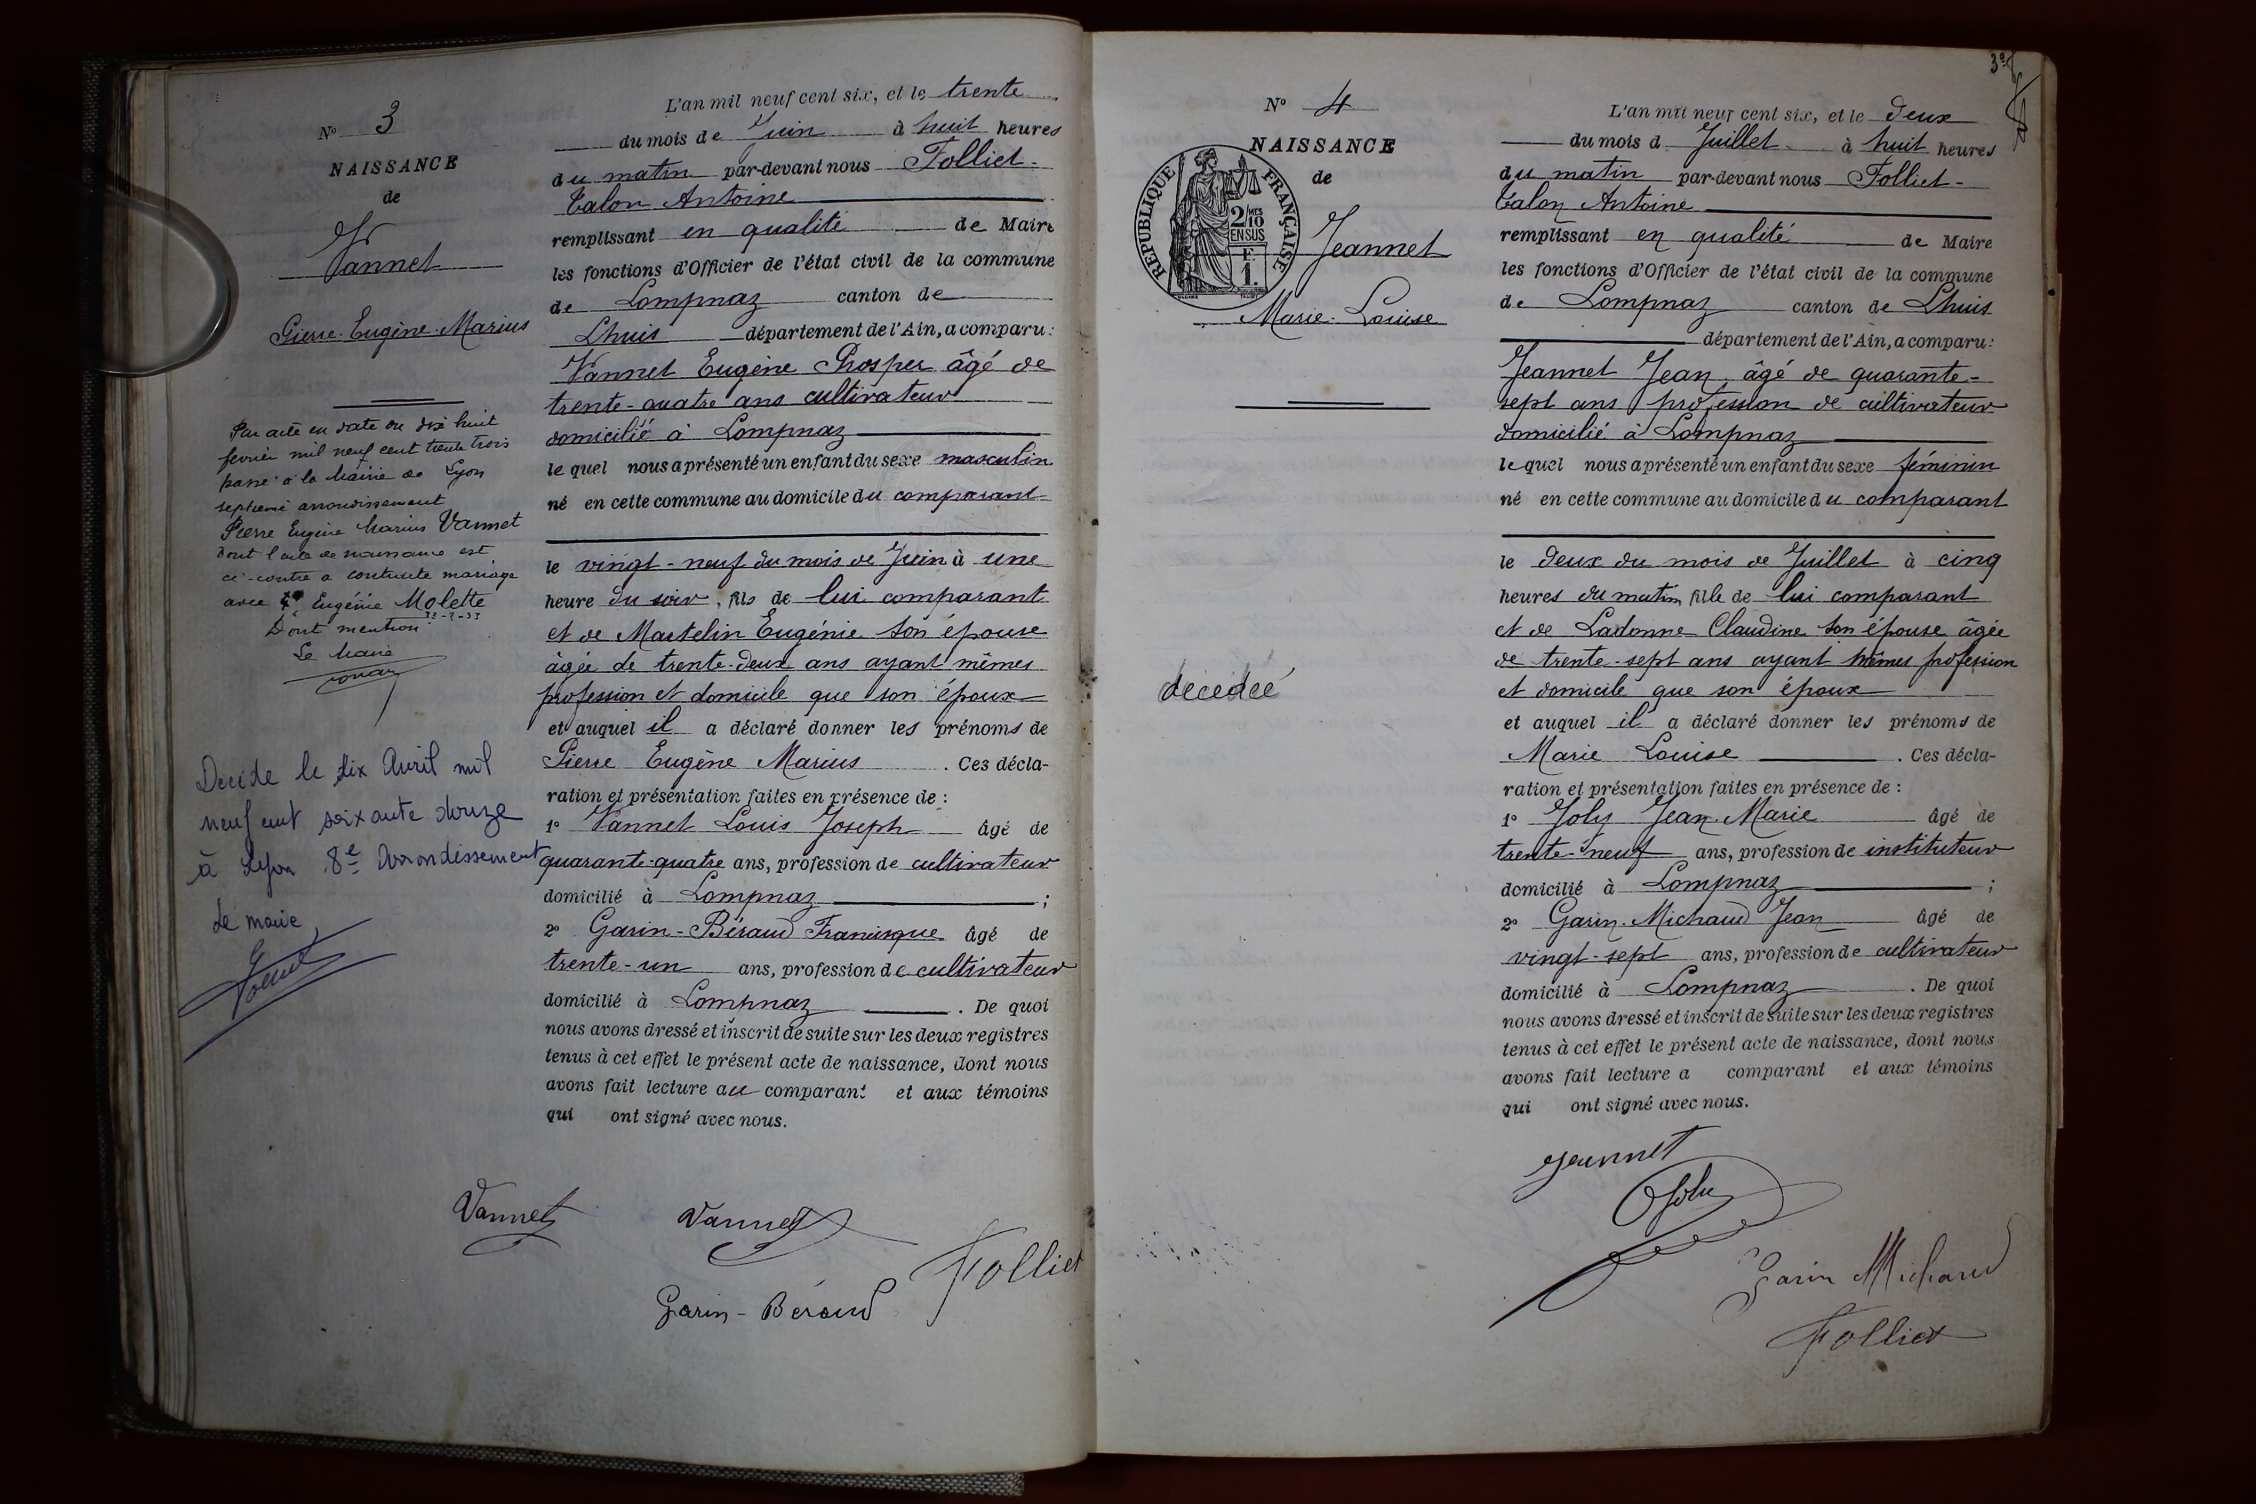 N° 3
NAISSANCE
de
Vannet
Pierre Eugène Marius
Par acte en date du dix huit
février mil neuf cent trente trois
passé à la Mairie de Lyon
septième arrondissement
Pierre Eugène Marius Vannet
dont l'acte de naissance est
ci-contre a contracté mariage
avec Eugénie Molette
Dont mention
Le Maire
Décédé le dix Avril mil
neuf cent soixante douze
à Lyon 8e Arrondissement
Le maire
L'an mil neuf cent six, et le trente
du mois de Juin à huit heures
du matin par-devant nous Folliet-
Talon Antoine
remplissant en qualité de Maire
les fonctions d'Officier de l'état civil de la commune
de Lompnaz canton de
Lhuis département de l'Ain, a comparu :
Vannet Eugène Prosper âgé de
trente-quatre ans cultivateur
domicilié à Lompnaz
le quel nous a présenté un enfant du sexe masculin
né en cette commune au domicile du comparant
le vingt-neuf du mois de Juin à une
heure du soir, fils de lui comparant
et de Martelin Eugénie son épouse
âgée de trente-deux ans ayant mêmes
profession et domicile que son époux
et auquel il a déclaré donner les prénoms de
Pierre Eugène Marius . Ces décla-
ration et présentation faites en présence de :
1° Vannet Louis Joseph âgé de
quarante-quatre ans, profession de cultivateur
domicilié à Lompnaz ;
2° Garin-Béraud Francisque âgé de
trente-un ans, profession de cultivateur
domicilié à Lompnaz . De quoi
nous avons dressé et inscrit de suite sur les deux registres
tenus à cet effet le présent acte de naissance, dont nous
avons fait lecture au comparant et aux témoins
qui ont signé avec nous.
Vannet Vannet
Folliet
Garin-Béraud
N° 4
NAISSANCE
de
RÉPUBLIQUE FRANÇAISE
2/MES
10
EN SUS
F.
1.
Jeannet
Marie-Louise
decedeé
L'an mil neuf cent six, et le deux
du mois d Juillet à huit heures
du matin par-devant nous Folliet-
Talon Antoine
remplissant en qualité de Maire
les fonctions d'Officier de l'état civil de la commune
de Lompnaz canton de Lhuis
département de l'Ain, a comparu :
Jeannet Jean, âgé de quarante-
sept ans profession de cultivateur
domicilié à Lompnaz
le quel nous a présenté un enfant du sexe féminin
né en cette commune au domicile du comparant
le deux du mois de Juillet à cinq
heures du matin, fille de lui comparant
et de Ladonne Claudine son épouse âgée
de trente-sept ans ayant mêmes profession
et domicile que son époux
et auquel il a déclaré donner les prénoms de
Marie Louise . Ces décla-
ration et présentation faites en présence de :
1° Joly Jean-Marie âgé de
trente-neuf ans, profession de instituteur
domicilié à Lompnaz ;
2° Garin-Michaud Jean âgé de
vingt-sept ans, profession de cultivateur
domicilié à Lompnaz . De quoi
nous avons dressé et inscrit de suite sur les deux registres
tenus à cet effet le présent acte de naissance, dont nous
avons fait lecture a comparant et aux témoins
qui ont signé avec nous.
Jeannet
Joly
Garin Michaud
Folliet